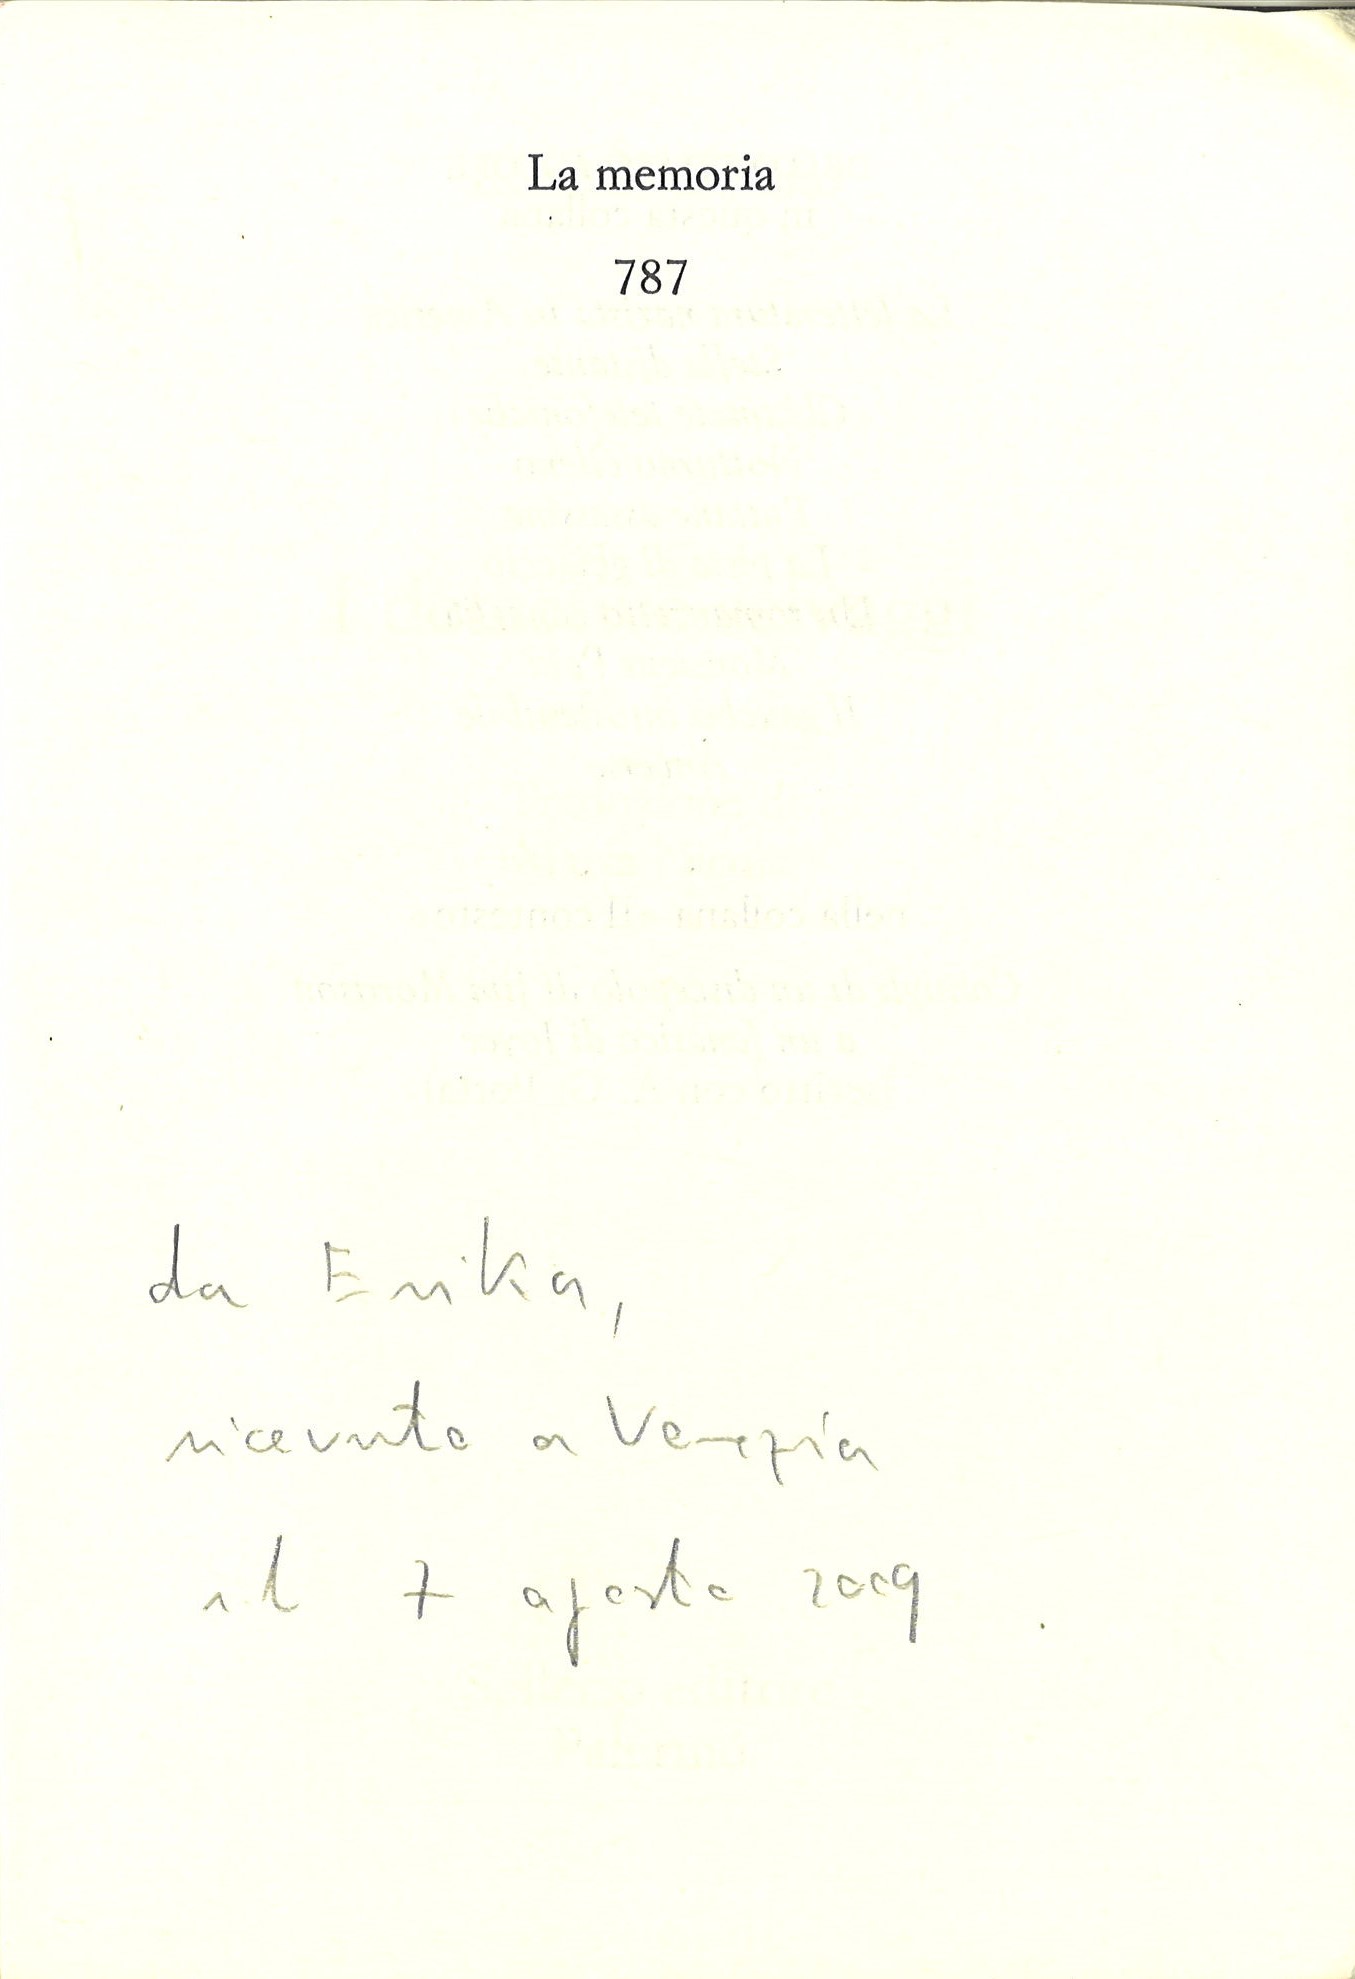 La memoria
787
da Erika,
ricevuto a Venezia
il 7 agosto 2009